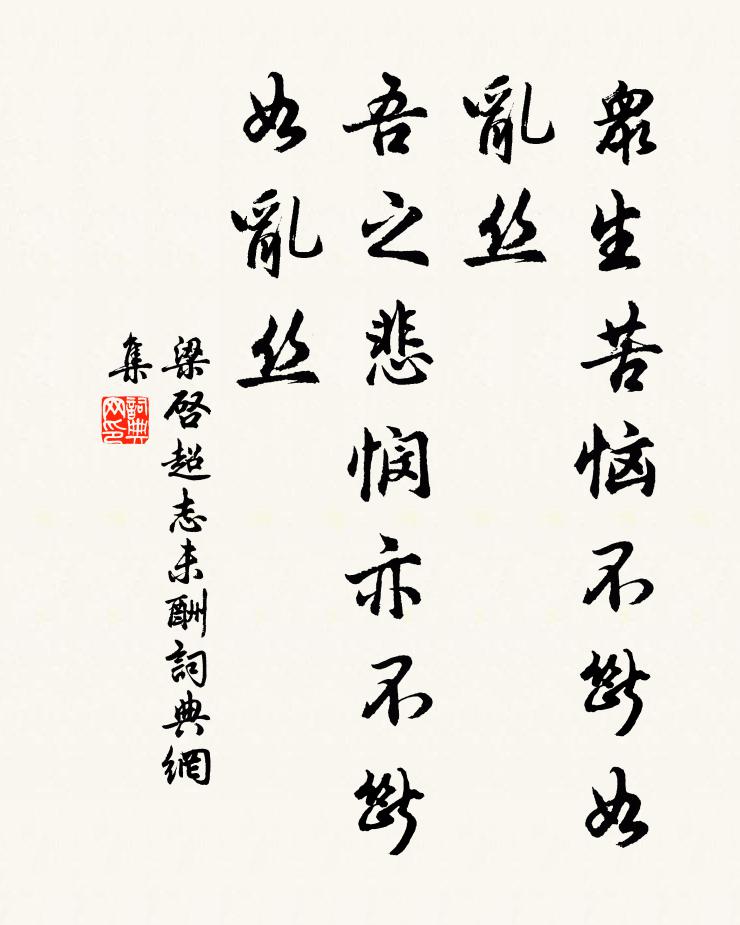 眾生苦恼不斷如
亂丝
吾之悲悯亦不斷
如亂丝
梁啓超志未酬詞典網
集
詞典
网印